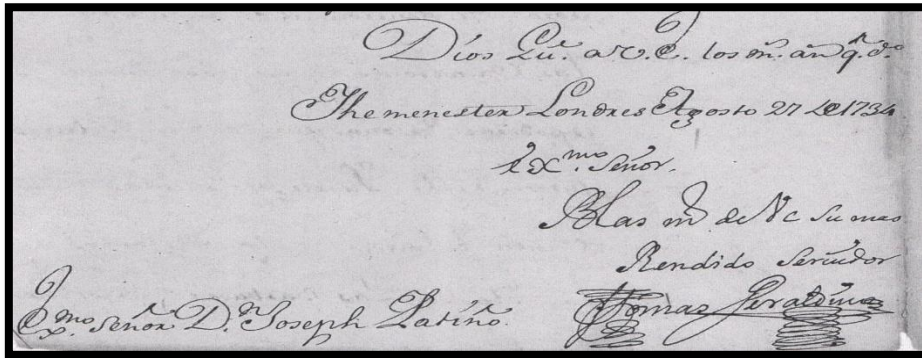 Dios Gu.e a V.E. los m.s an.s q.e d.o
menester Londres Agosto 27 de 1734
Ex.mo Señor.
BLas m.s de Vc su mas
Rendido Servidor
Ex.mo Señor D.n Joseph Patiño.
Tomas Geraldino